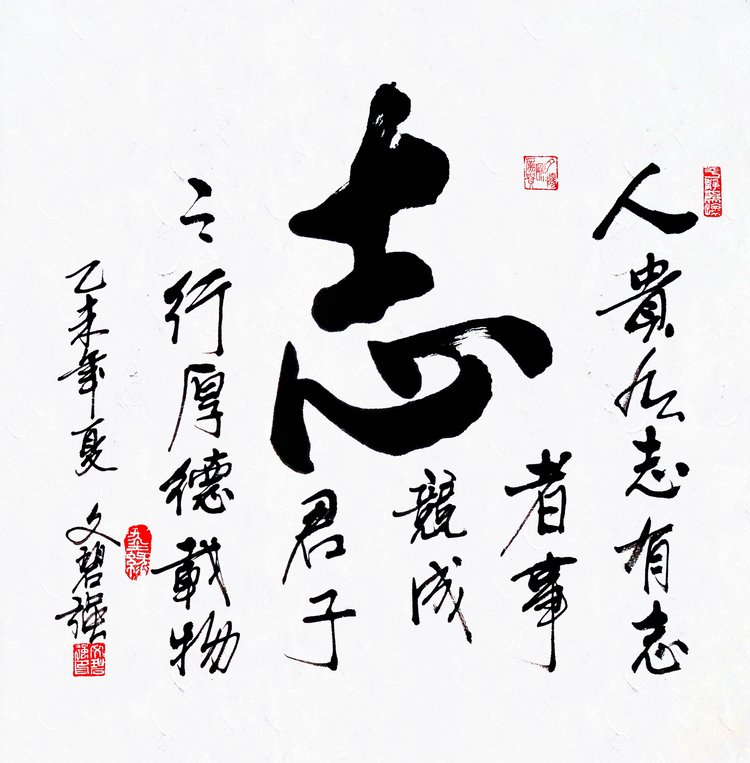 志
人貴志有志
者事
競成
君子
之行厚德載物
乙未年夏
文碧强